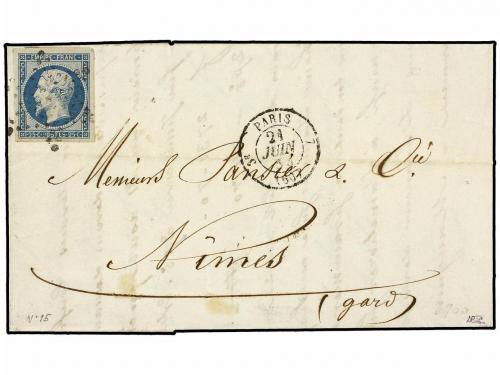 EMPIRE FRANC.
PARIS
21
JUIN
(60)
Messieurs Pansier & Cie
Nîmes
(gard)
N°15